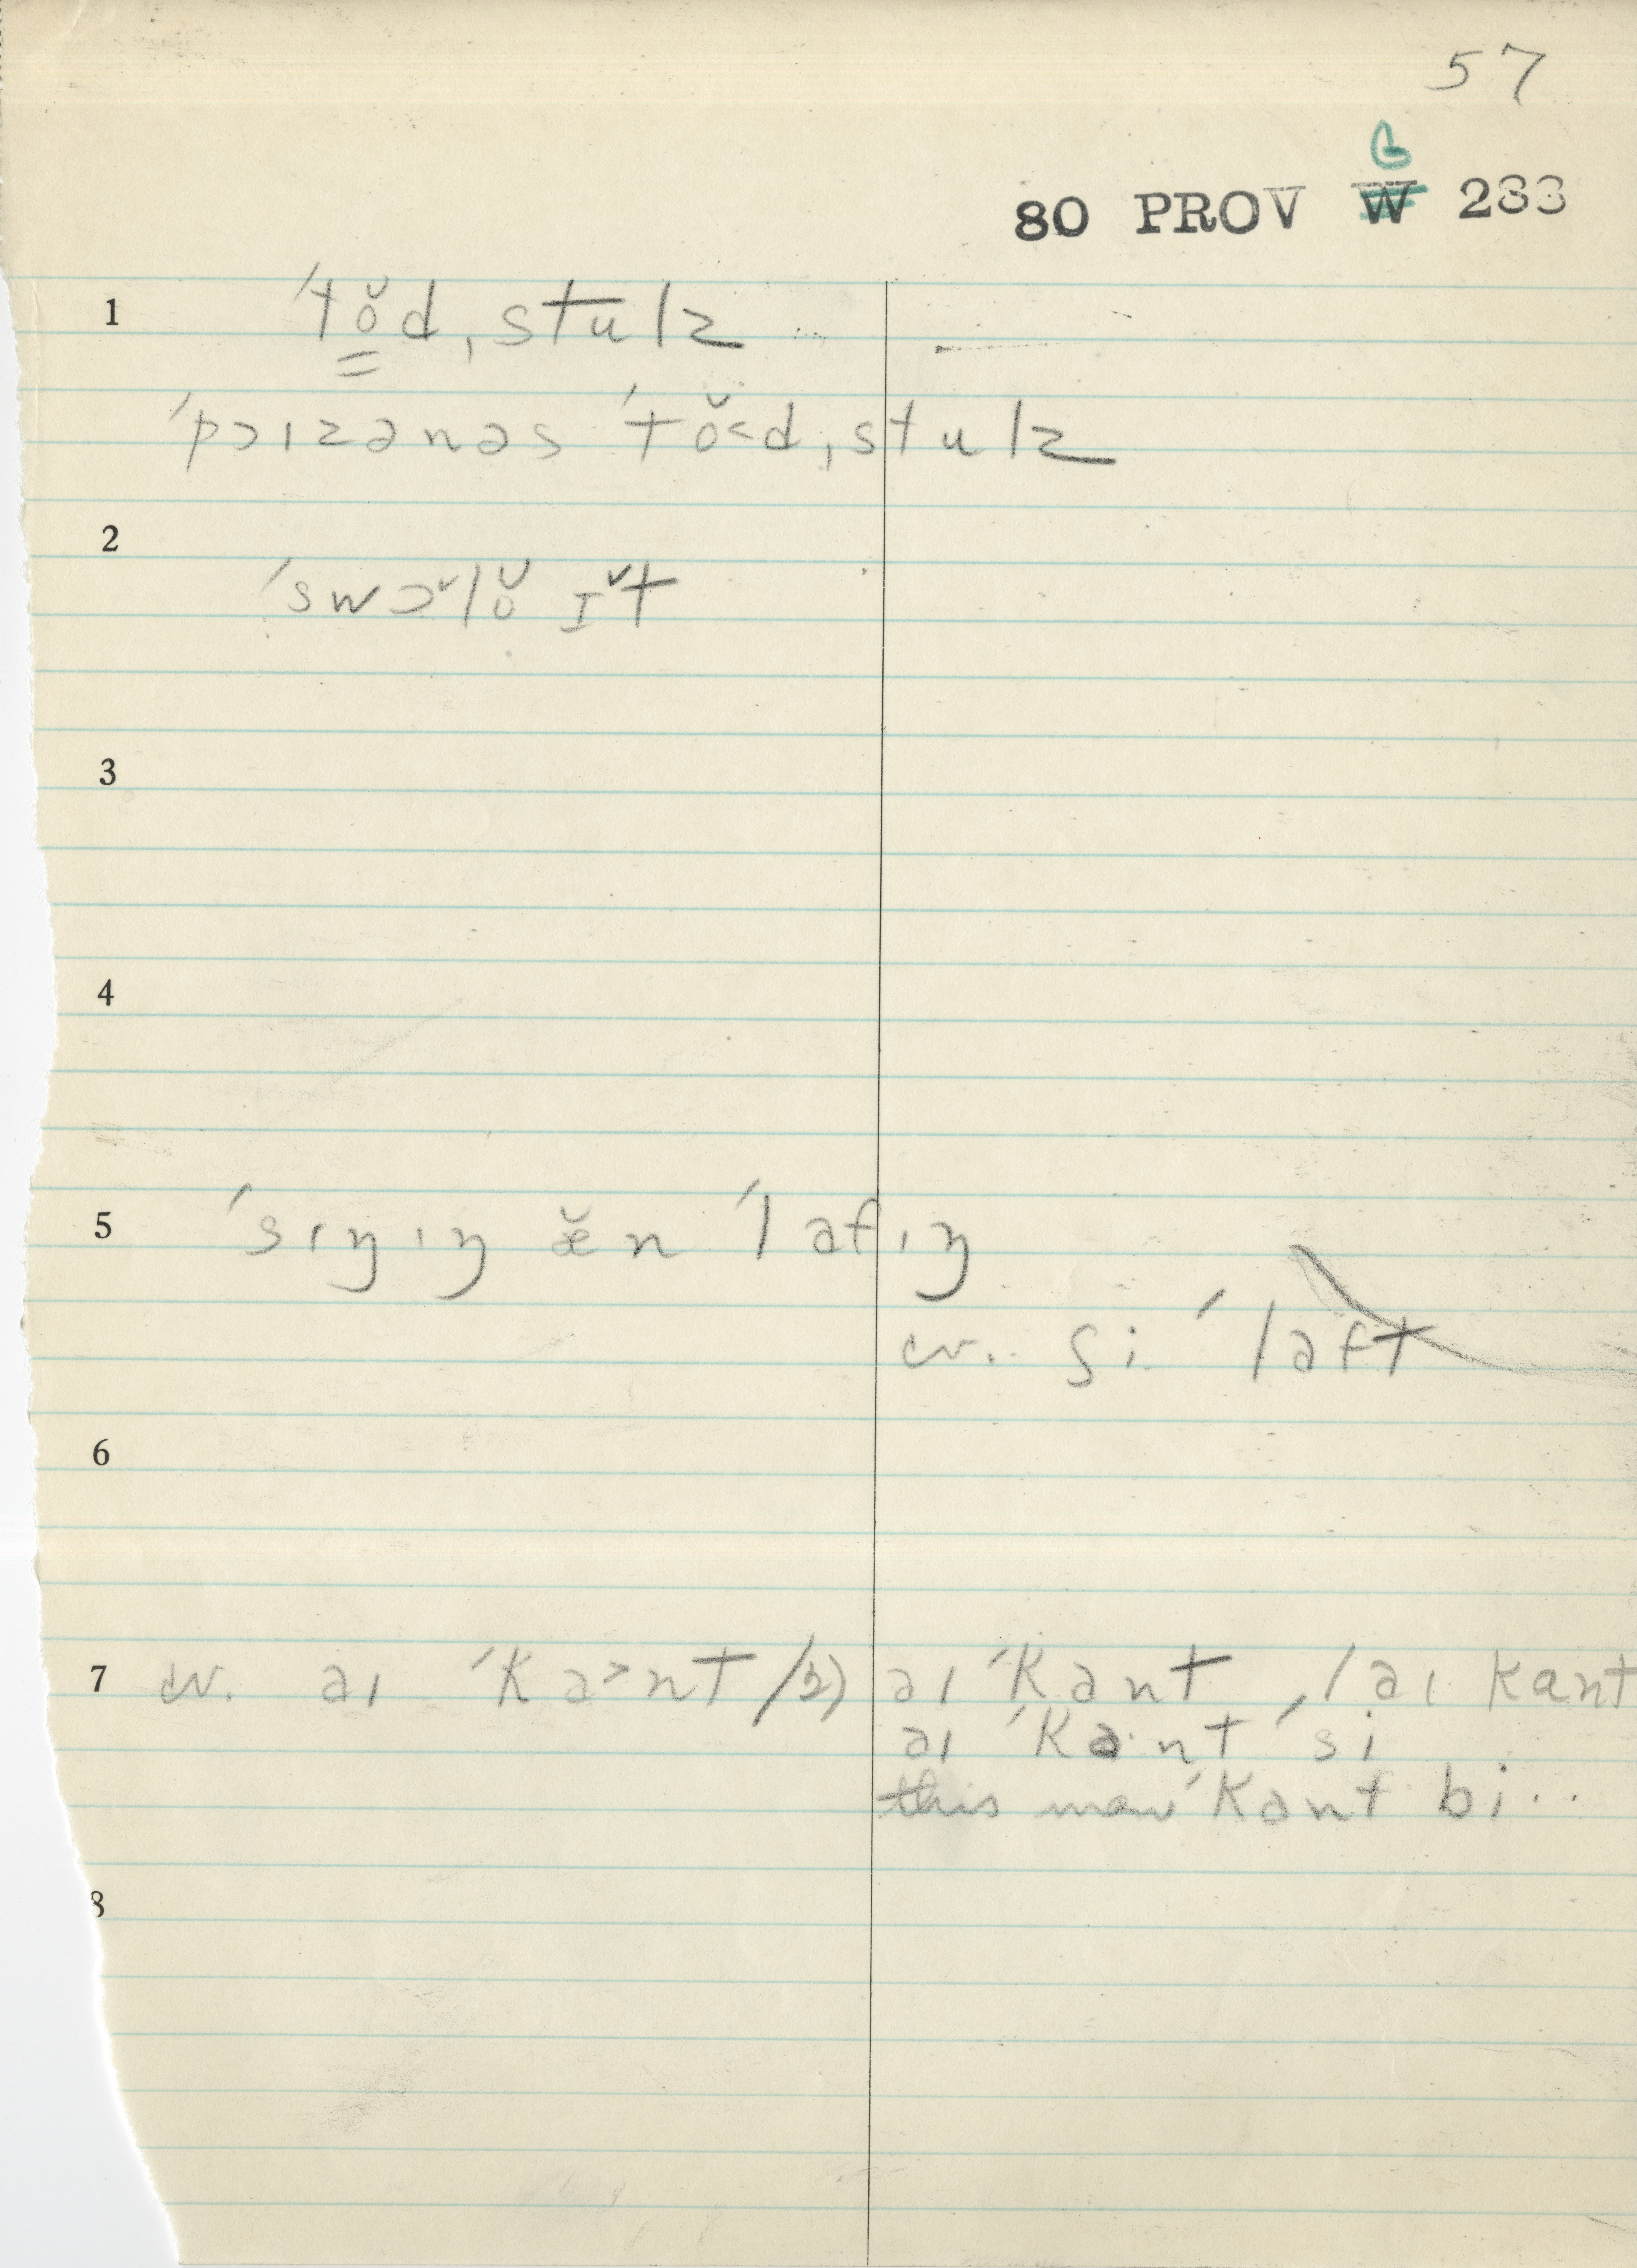 57
G
80 PROV W 283
1 ˈtŏ̳dˌstulz
ˈpɔɪzənəs ˈtŏ˂dˌstulz
2 ˈswɔ˅lŏ ɪ˅t
3
4
5 ˈsɪŋɪŋ æ̆n ˈlafɪŋ
cv. ʃi ˈlaft
6
7 cv. aɪ ˈka˃nt /2) aɪ ˈkant, / aɪ kant
aɪ ˈka·nt ˈsi
this man ˈkant bi..
8